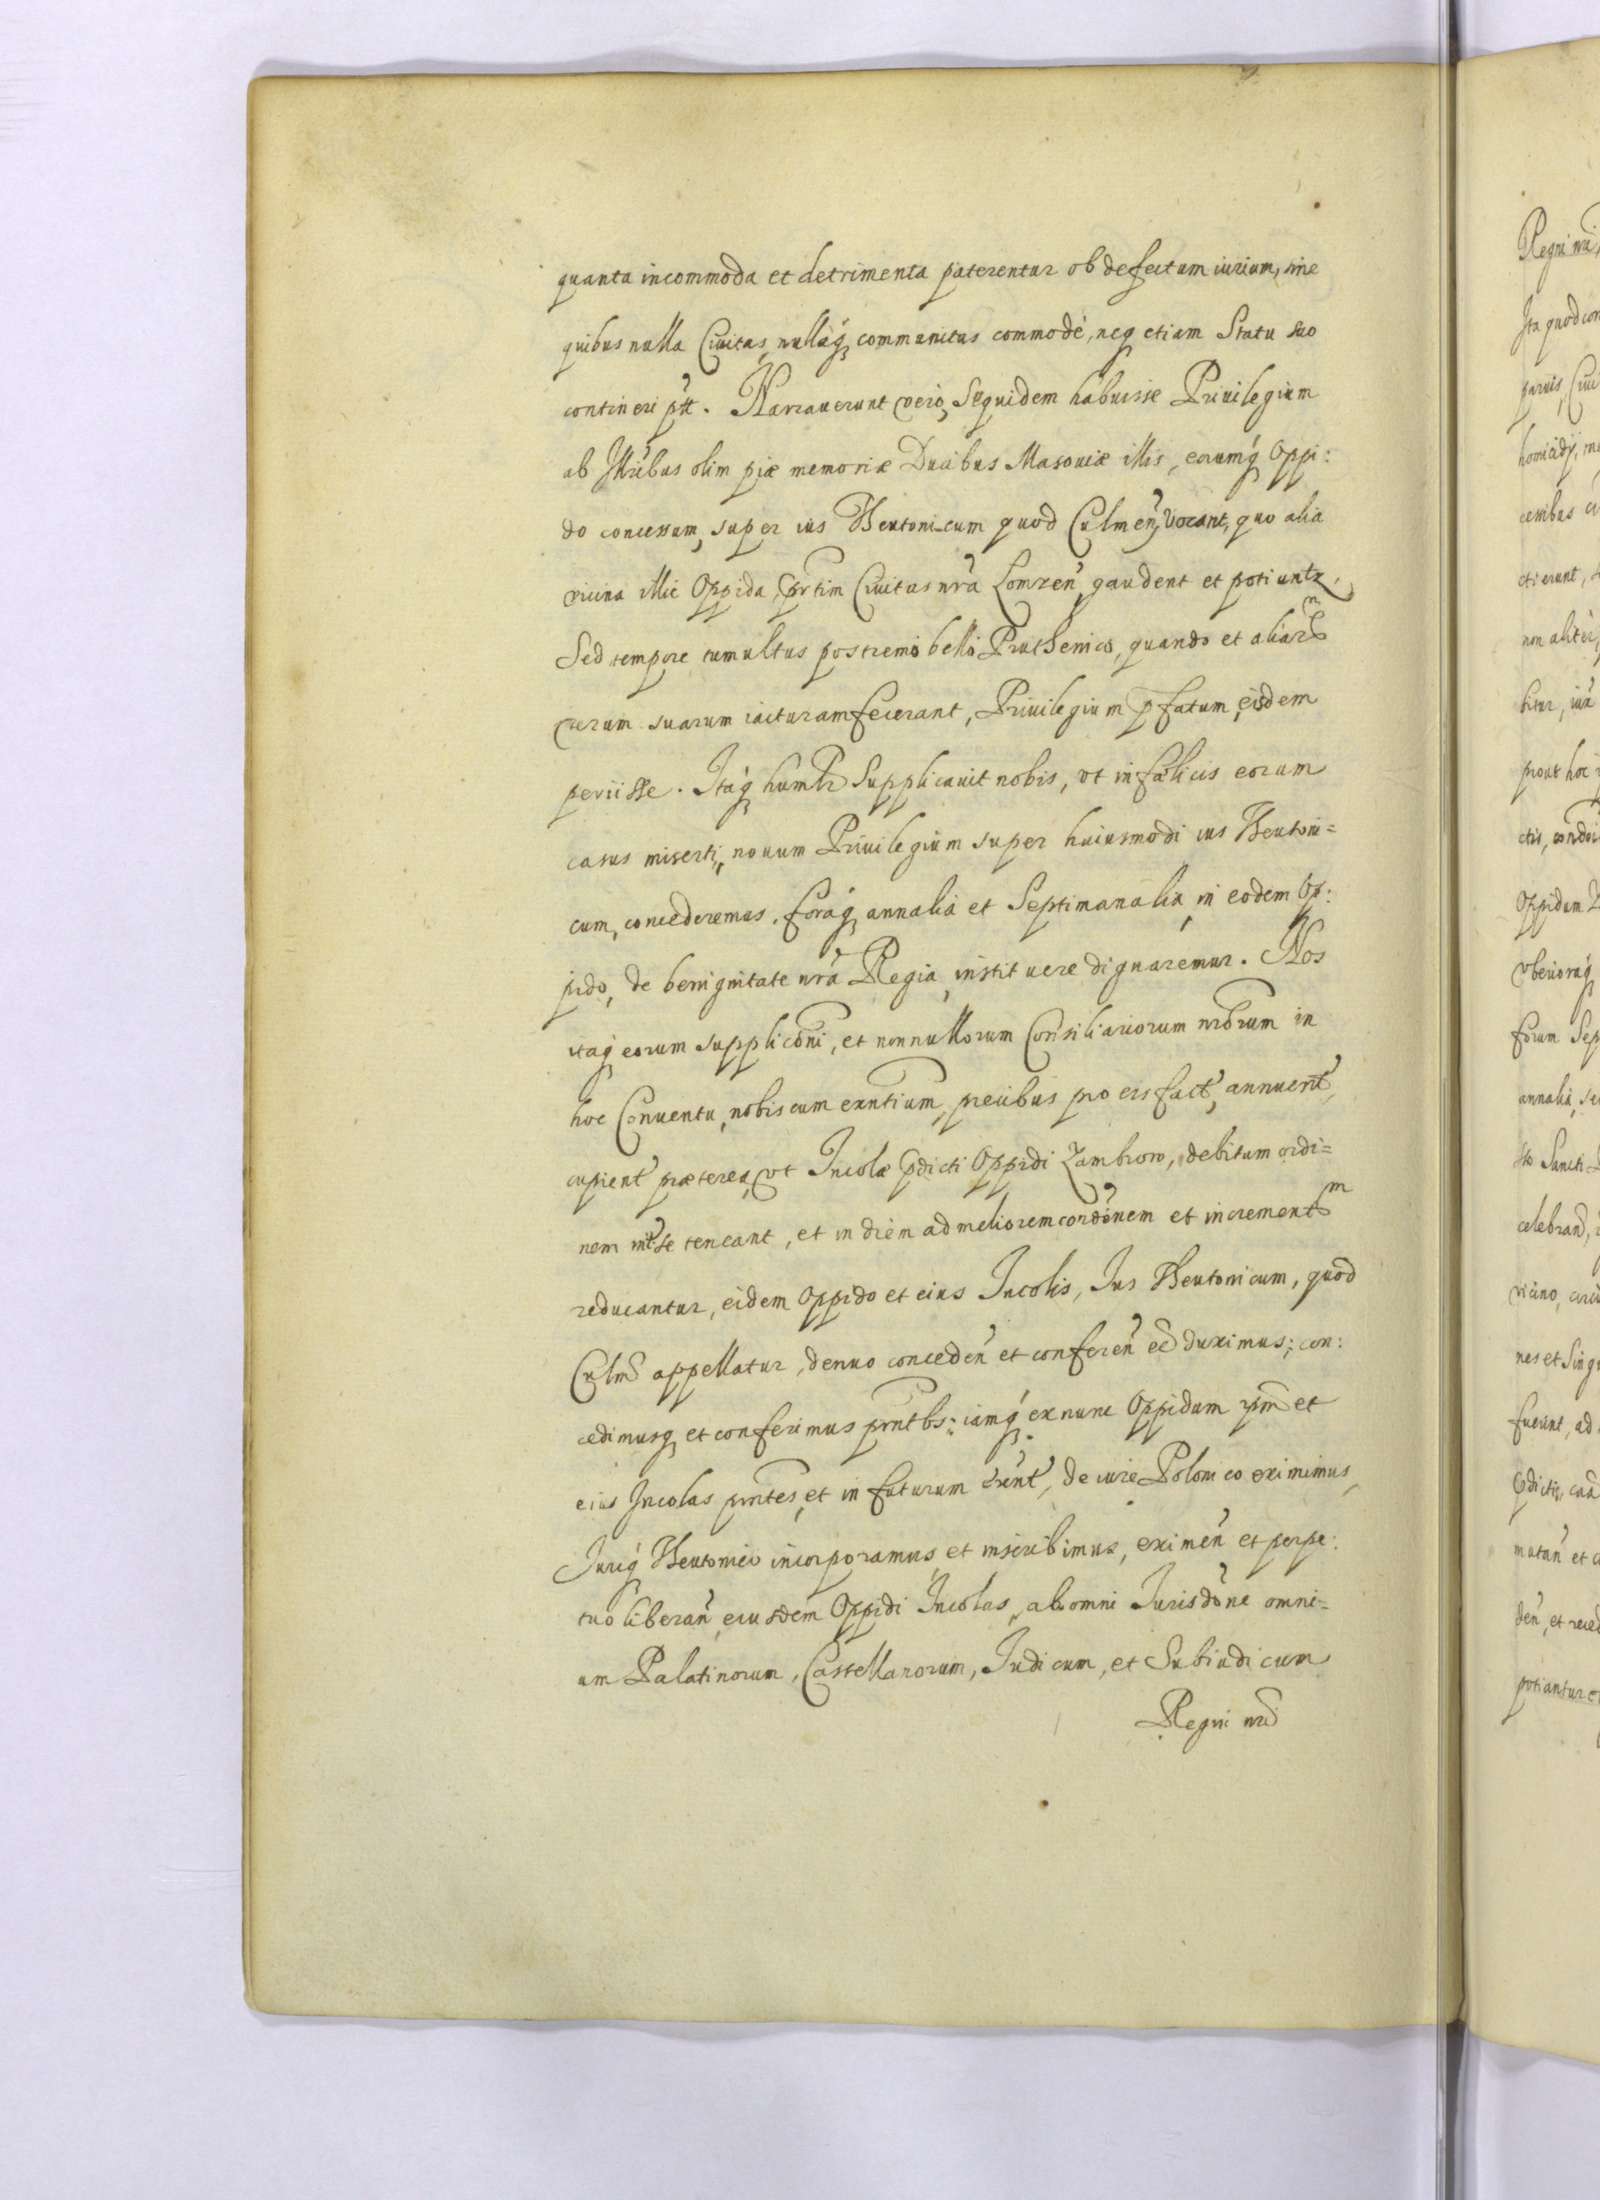 quanta incommoda et detrimenta paterentur ob defectum iurium, sine
quibus nulla Ciuitas, nullaq; communitas commodè, neq; etiam Statu suo
contineri ptt. Narrauerunt verò, Sequidem habuisse Priuilegium
ab Illribus olim piæ memoriæ Ducibus Masouiæ illis, eorumq; Oppi:
do concessum, super ius Theutonicum quod Culmen̄, vocant, quo alia
vicina illic Oppida, prtim Ciuitas nrã Lomzen̄, gaudent et potiuntr.
Sed tempore tumultus postremo bello Pruthenico, quando et aliarum
rerum suarum iacturam fecerant, Priuilegium pfatum, eisdem
periisse. Itaq; humlr Supplicauit nobis, vt infælicis eorum
casus miserti, nouum Priuilegium super huiusmodi ius Theutoni=
cum, concederemus. foraq; annalia et Septimanalia, in eodem Op:
pido, de benignitate nrã Regia, instituere dignaremur. Nos
itaq; eorum supplicõni, et nonnullorum Consiliariorum nrorum in
hoc Conuentu, nobiscum exñtium, precibus pro eis fact̃, annuent̃,
cupient̃ præterea, vt Incolæ pdicti Oppidi Zambrow, debitum ordi=
nem int̃ se teneant, et in diem ad meliorem condõnem et incrementum
reducantur, eidem Oppido et eius Incolis, Ius Theutonicum, quod
Culm̃ appellatur, denuo conceden̄ et conferen̄ eẽ duximus; con:
cedimusq; et conferimus prñtbs: iamq; ex nunc Oppidum ipm̃ et
eius Incolas prñtes, et in futurum exnt̃, de iure Polonico eximimus,
Juriq; Theutonico incorporamus, et inscribimus, eximen̄ et perpe:
tuo liberan̄, eiusdem Oppidi Incolas, ab omni Jurisdõne omni=
um Palatinorum, Castellanorum, Iudicum, et Subiudicum
Regni nrĩ